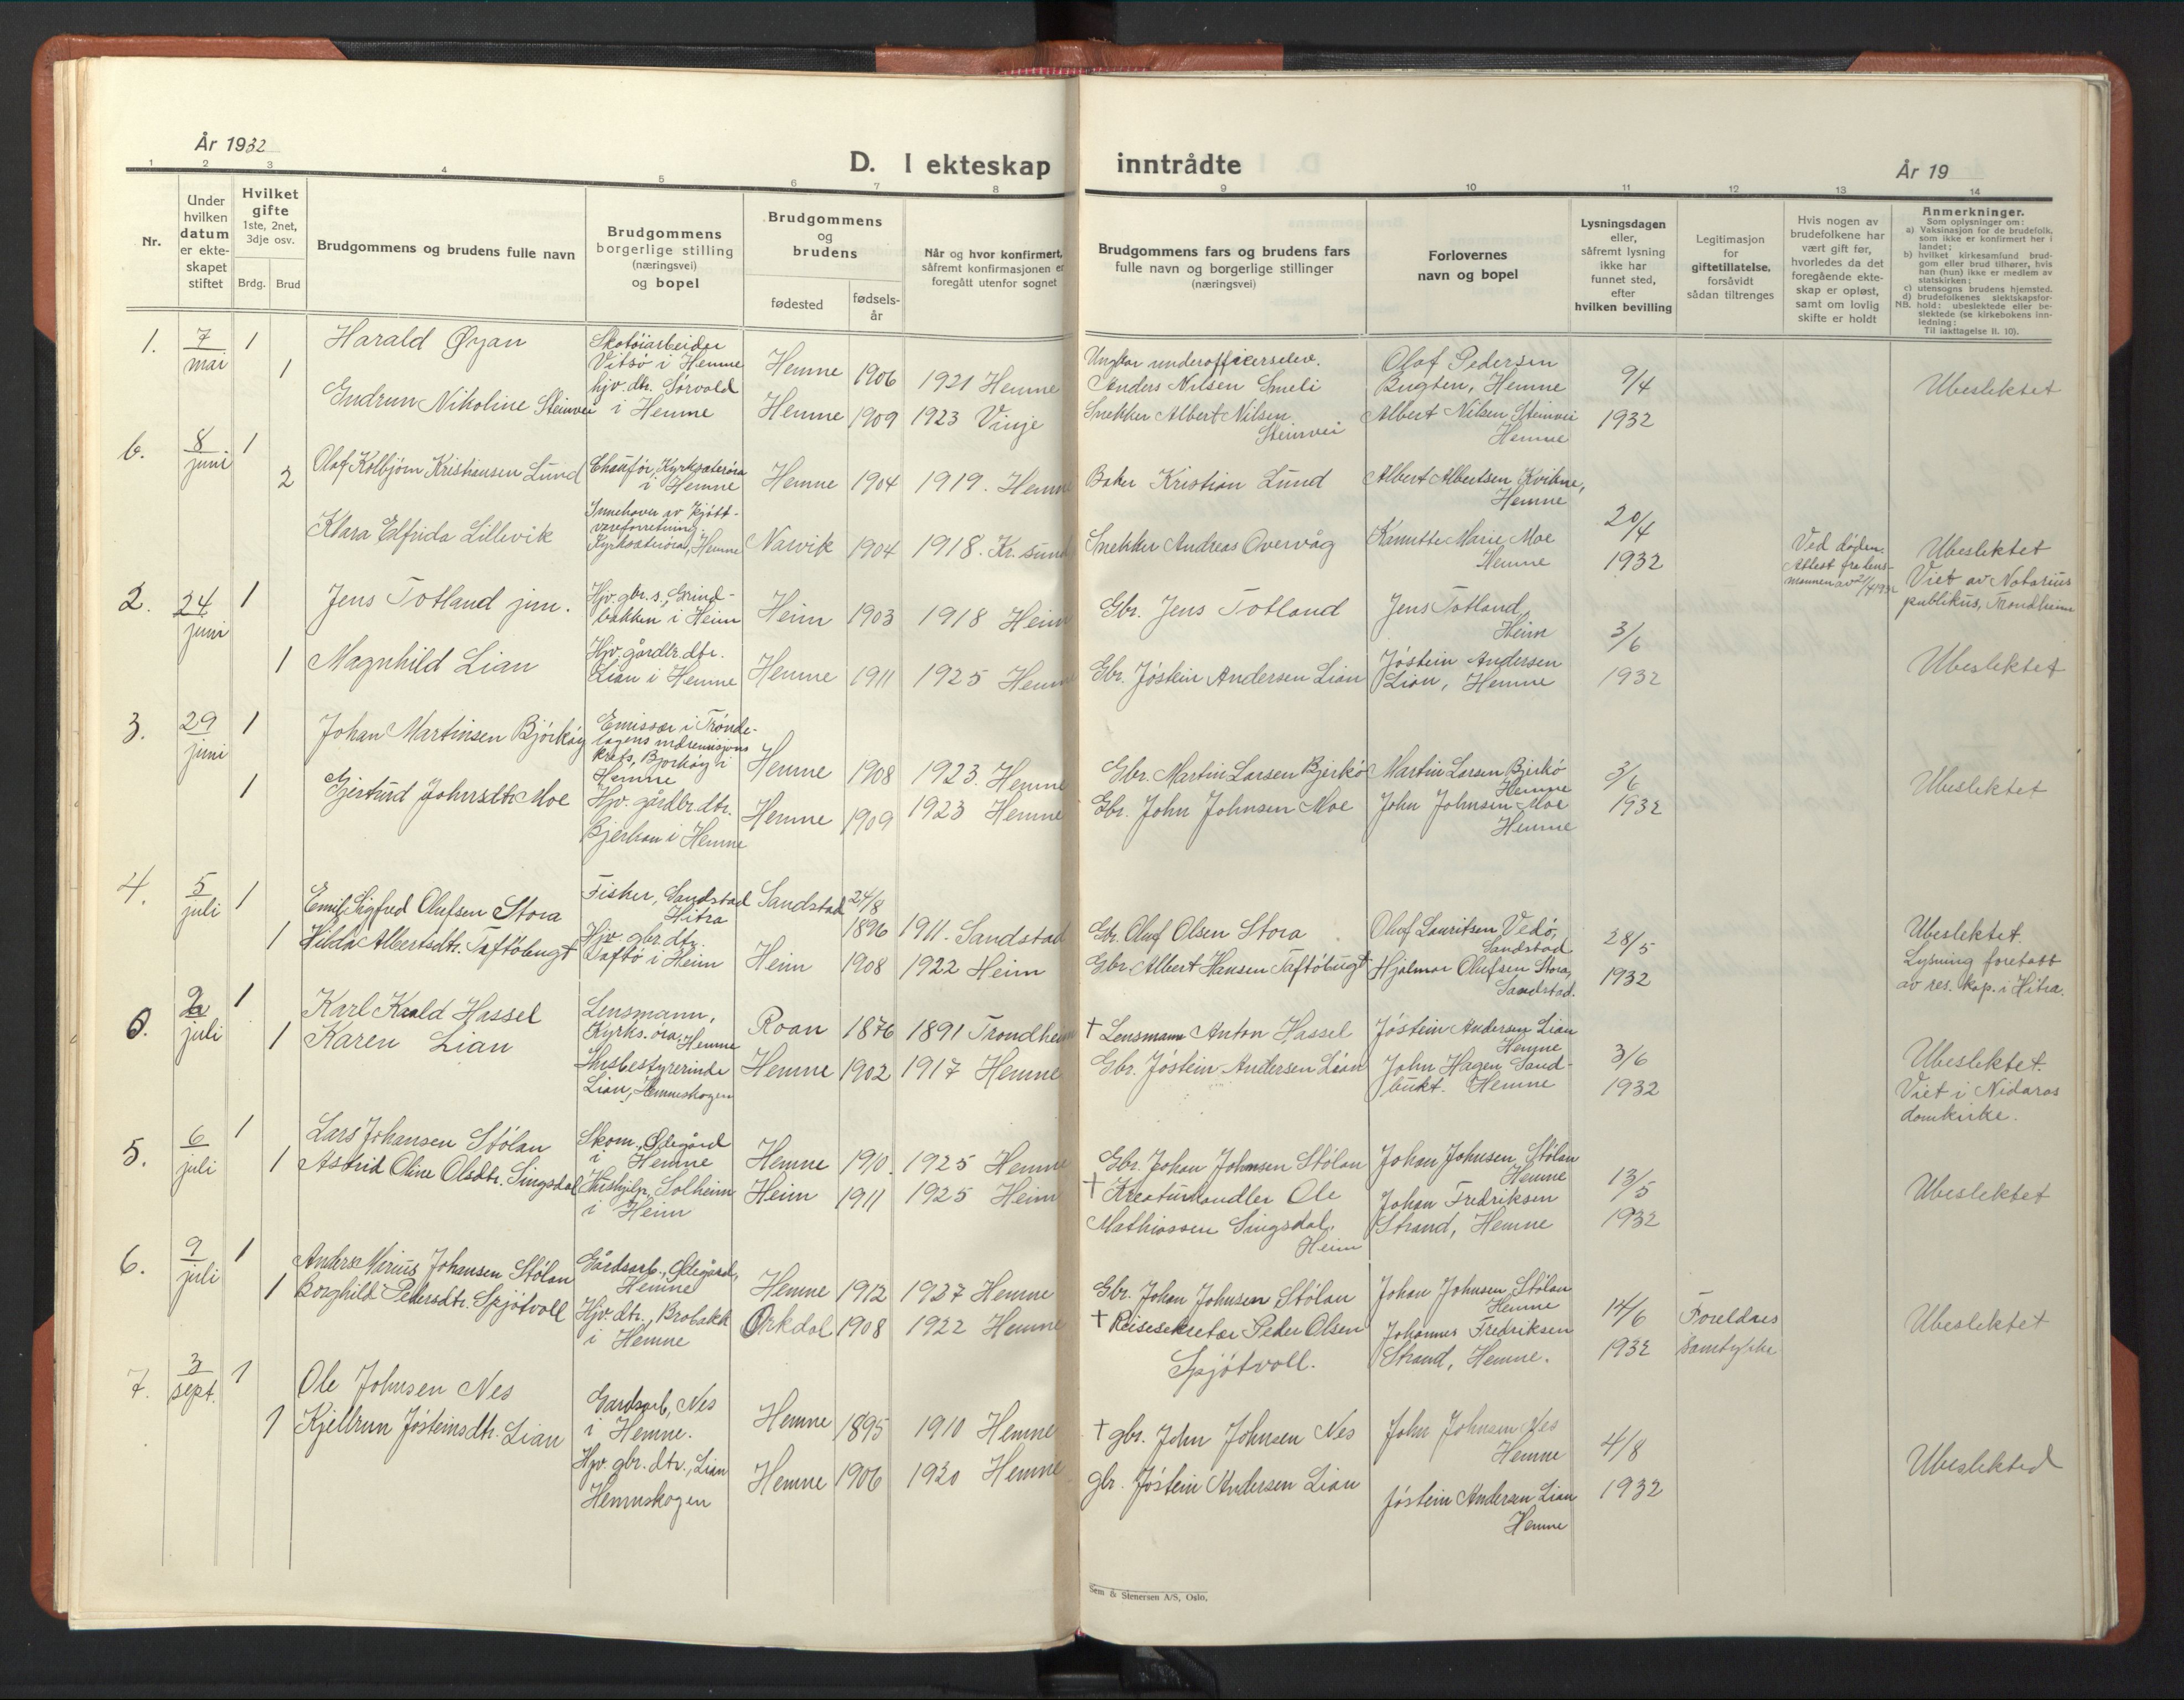 År 1932
D. I ekteskap inntrådte
År 19
1 2 3 4 5 6 7 8 9 10 11 12 13 14
Nr.
Under hvilken datum er ekteskapet stiftet
Hvilket gifte 1ste, 2net, 3dje osv.
Brdg. Brud
Brudgommens og brudens fulle navn
Brudgommens borgerlige stilling (næringsvei) og bopel
Brudgommens og brudens
fødested
fødselsår
Når og hvor konfirmert, såfremt konfirmasjonen er foregått utenfor sognet
Brudgommens fars og brudens fars fulle navn og borgerlige stillinger (næringsvei)
Forlovernes navn og bopel
Lysningsdagen eller, såfremt lysning ikke har funnet sted, efter hvilken bevilling
Legitimasjon for giftetillatelse, forsåvidt sådan tiltrenges
Hvis nogen av brudefolkene har vært gift før, hvorledes da det foregående ekteskap er opløst, samt om lovlig skifte er holdt
Anmerkninger.
Som oplysninger om:
a) Vaksinasjon for de brudefolk, som ikke er konfirmert her i landet;
b) hvilket kirkesamfund brudgom eller brud tilhører, hvis han (hun) ikke er medlem av statskirken;
c) utensogns brudens hjemsted.
d) brudefolkenes slektskapsforhold: ubeslektede eller beslektede (se kirkebokens innledning:
NB.
Til iakttagelse II. 10).
1. 7 mai 1 Harald Øyan Skotøiarbeider Vitsø i Hemne Hemne 1906 1921 Hemne Ungkar underoffiserselev. Anders Nilsen Smeli Olaf Pedersen Bugten, Hemne 9/4 Ubeslektet
1 Gudrun Nikoline Steinvei hjv. dtr. Sørvold i Hemne Hemne 1909 1923 Vinje Snekker Albert Nilsen Steinvei Albert Nilsen Steinvei Hemne 1932
6. 8 juni 1 Olaf Kolbjørn Kristiansen Lund Chaufør, Kyrksæterøra i Hemne Hemne 1904 1919. Hemne Baker Kristian Lund Albert Albertsen Kvikne, Hemne 20/4
2 Klara Elfrida Lillevik Innehaver av kjøttvareforretning. Kyrksæterøra, Hemne Narvik 1904 1918. Kr. sund Snekker Andreas Overvåg Kanutte Marie Moe Hemne 1932 Ved døden. Attest fra lensmannen av 21/4 1932 Ubeslektet Viet av Notarius publikus, Trondheim
2. 24 juni 1 Jens Totland jun. Hjv. gbr. s., Grindbakken i Heim Heim 1903 1918 Heim Gbr. Jens Totland Jens Totland, Heim 3/6
1 Magnhild Lian Hjv. gårdbr. dtr. Lian i Hemne Hemne 1911 1925 Hemne Gbr. Jøstein Andersen Lian Jøstein Andersen Lian, Hemne 1932 Ubeslektet
3. 29 juni 1 Johan Martinsen Bjørkøy Emissær i Trøndelagens indremisjons krets, Bjørkøy i Hemne Hemne 1908 1923. Hemne Gbr. Martin Larsen Bjerkø Martin Larsen Bjerkø Hemne 3/6 Ubeslektet
1 Gjertrud Johnsdtr. Moe Hjv. gårdbr. dtr. Bjerkan i Hemne Hemne 1909 1923 Hemne Gbr. John Johnsen Moe John Johnsen Moe Hemne 1932
4. 5 juli 1 Emil Sigfred Olufsen Stora Fisker, Sandstad Hitra Sandstad 24/8 1896 1911. Sandstad Gbr. Oluf Olsen Stora Oluf Lauritsen Vedø, Sandstad 28/5 Ubeslektet.
1 Hilda Albertsdtr. Taftøbugt Hjv. gbr. dtr. Taftø i Heim Heim 1908 1922 Heim Gbr. Albert Hansen Taftøbugt Hjalmar Olufsen Stora, Sandstad. 1932 Lysning foretatt av res. kap. i Hitra.
juli 1 Karl Kaald Hassel Lensmann, Kyrks.øra, Hemne Roan 1876 1891 Trondheim † Lensmann Anton Hassel Jøstein Andersen Lian Hemne 3/6 Ubeslektet.
1 Karen Lian Husbestyrerinde Lian, Hemneskogen Hemne 1902 1917 Hemne Gbr. Jøstein Andersen Lian John Hagen, Sandbukt. Hemne 1932 Viet i Nidaros domkirke.
5. 6 juli 1 Lars Johansen Stølan Skom., Ødegård i Hemne Hemne 1910. 1925 Hemne Gbr. Johan Johnsen Stølan Johan Johnsen Stølan Hemne 13/5
1 Astrid Oline Olsdtr. Singsdal Hushjelp, Solheim i Heim Heim 1911 1925 Heim † Kreaturhandler Ole Mathiassen Singsdal. Heim Johan Fredriksen Strand, Hemne 1932 Ubeslektet
6. 9 juli 1 Anders Mirius Johansen Stølan Gårdsarb., Ødegård, Hemne Hemne 1912 1927 Hemne Gbr. Johan Johnsen Stølan Johan Johnsen Stølan Hemne 14/6 Foreldres samtykke
1 Borghild Pedersdtr. Spjøtvoll Hjv. dtr., Brobakk i Hemne Orkdal 1908 1922 Hemne † Reisesekretær Peder Olsen Spjøtvoll. Johannes Fredriksen Strand, Hemne. 1932 Ubeslektet
7. 3 sept. 1 Ole Johnsen Nes Gardsarb, Nes i Hemne. Hemne 1895 1910 Hemne † gbr. John Johnsen Nes John Johnsen Nes Hemne 4/8
1 Kjellrun Jøsteinsdtr. Lian Hjv. gbr. dtr., Lian Hemnskogen Hemne 1906 1920 Hemne gbr. Jøstein Andersen Lian Jøstein Andersen Lian Hemne 1932 Ubeslekted
Sem & Stenersen A/S, Oslo.